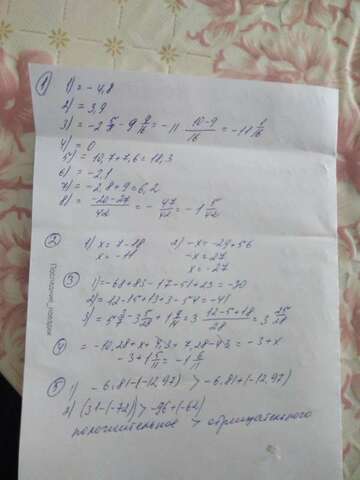 ① 1) = -4,8
2) = 3,9
3) = -2 5/7 - 9 9/16 = -11 10-9/16 = -11 1/16
4) = 0
5) = 10,7+7,6=18,3
6) = -2,1
7) = -2,8+9=6,2
8) = -20-27/42 = - 47/42 = -1 5/42
② 1) x = 7-18 2) -x = -29+56
x = -11 -x = 27
x = -27
③ 1) = -68+83-17-51+23=-30
2) = 12-15+13+3-54=-41
3) = 5 - 3 5/28 + 1 7/14 = 3 12-5+18/28 = 3 25/28
④ = -10,28+x+7,28-43 = -3+x
-3+1 5/11 = -1 6/11
⑤ 1) -6,81-(-12,97) > -6,81+(-12,97)
2) (31-(-72)) > -96+(-62)
положительное > отрицательного